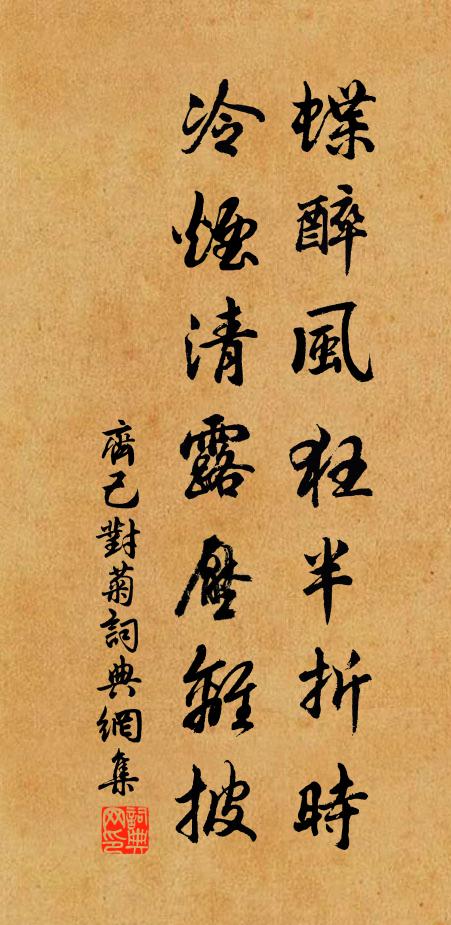 蝶醉風狂半折時
冷煙清露壓離披
齊己對菊詞典網集
詞典網印